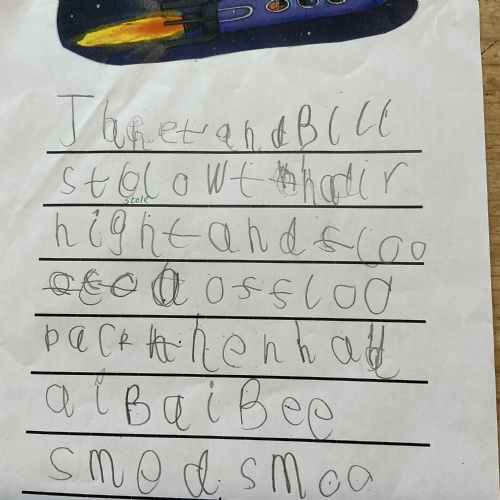 Janet and Bill
stol owt thair
stole
hight and floo
off loo
back then had
ai B ai B ee
smed smoo